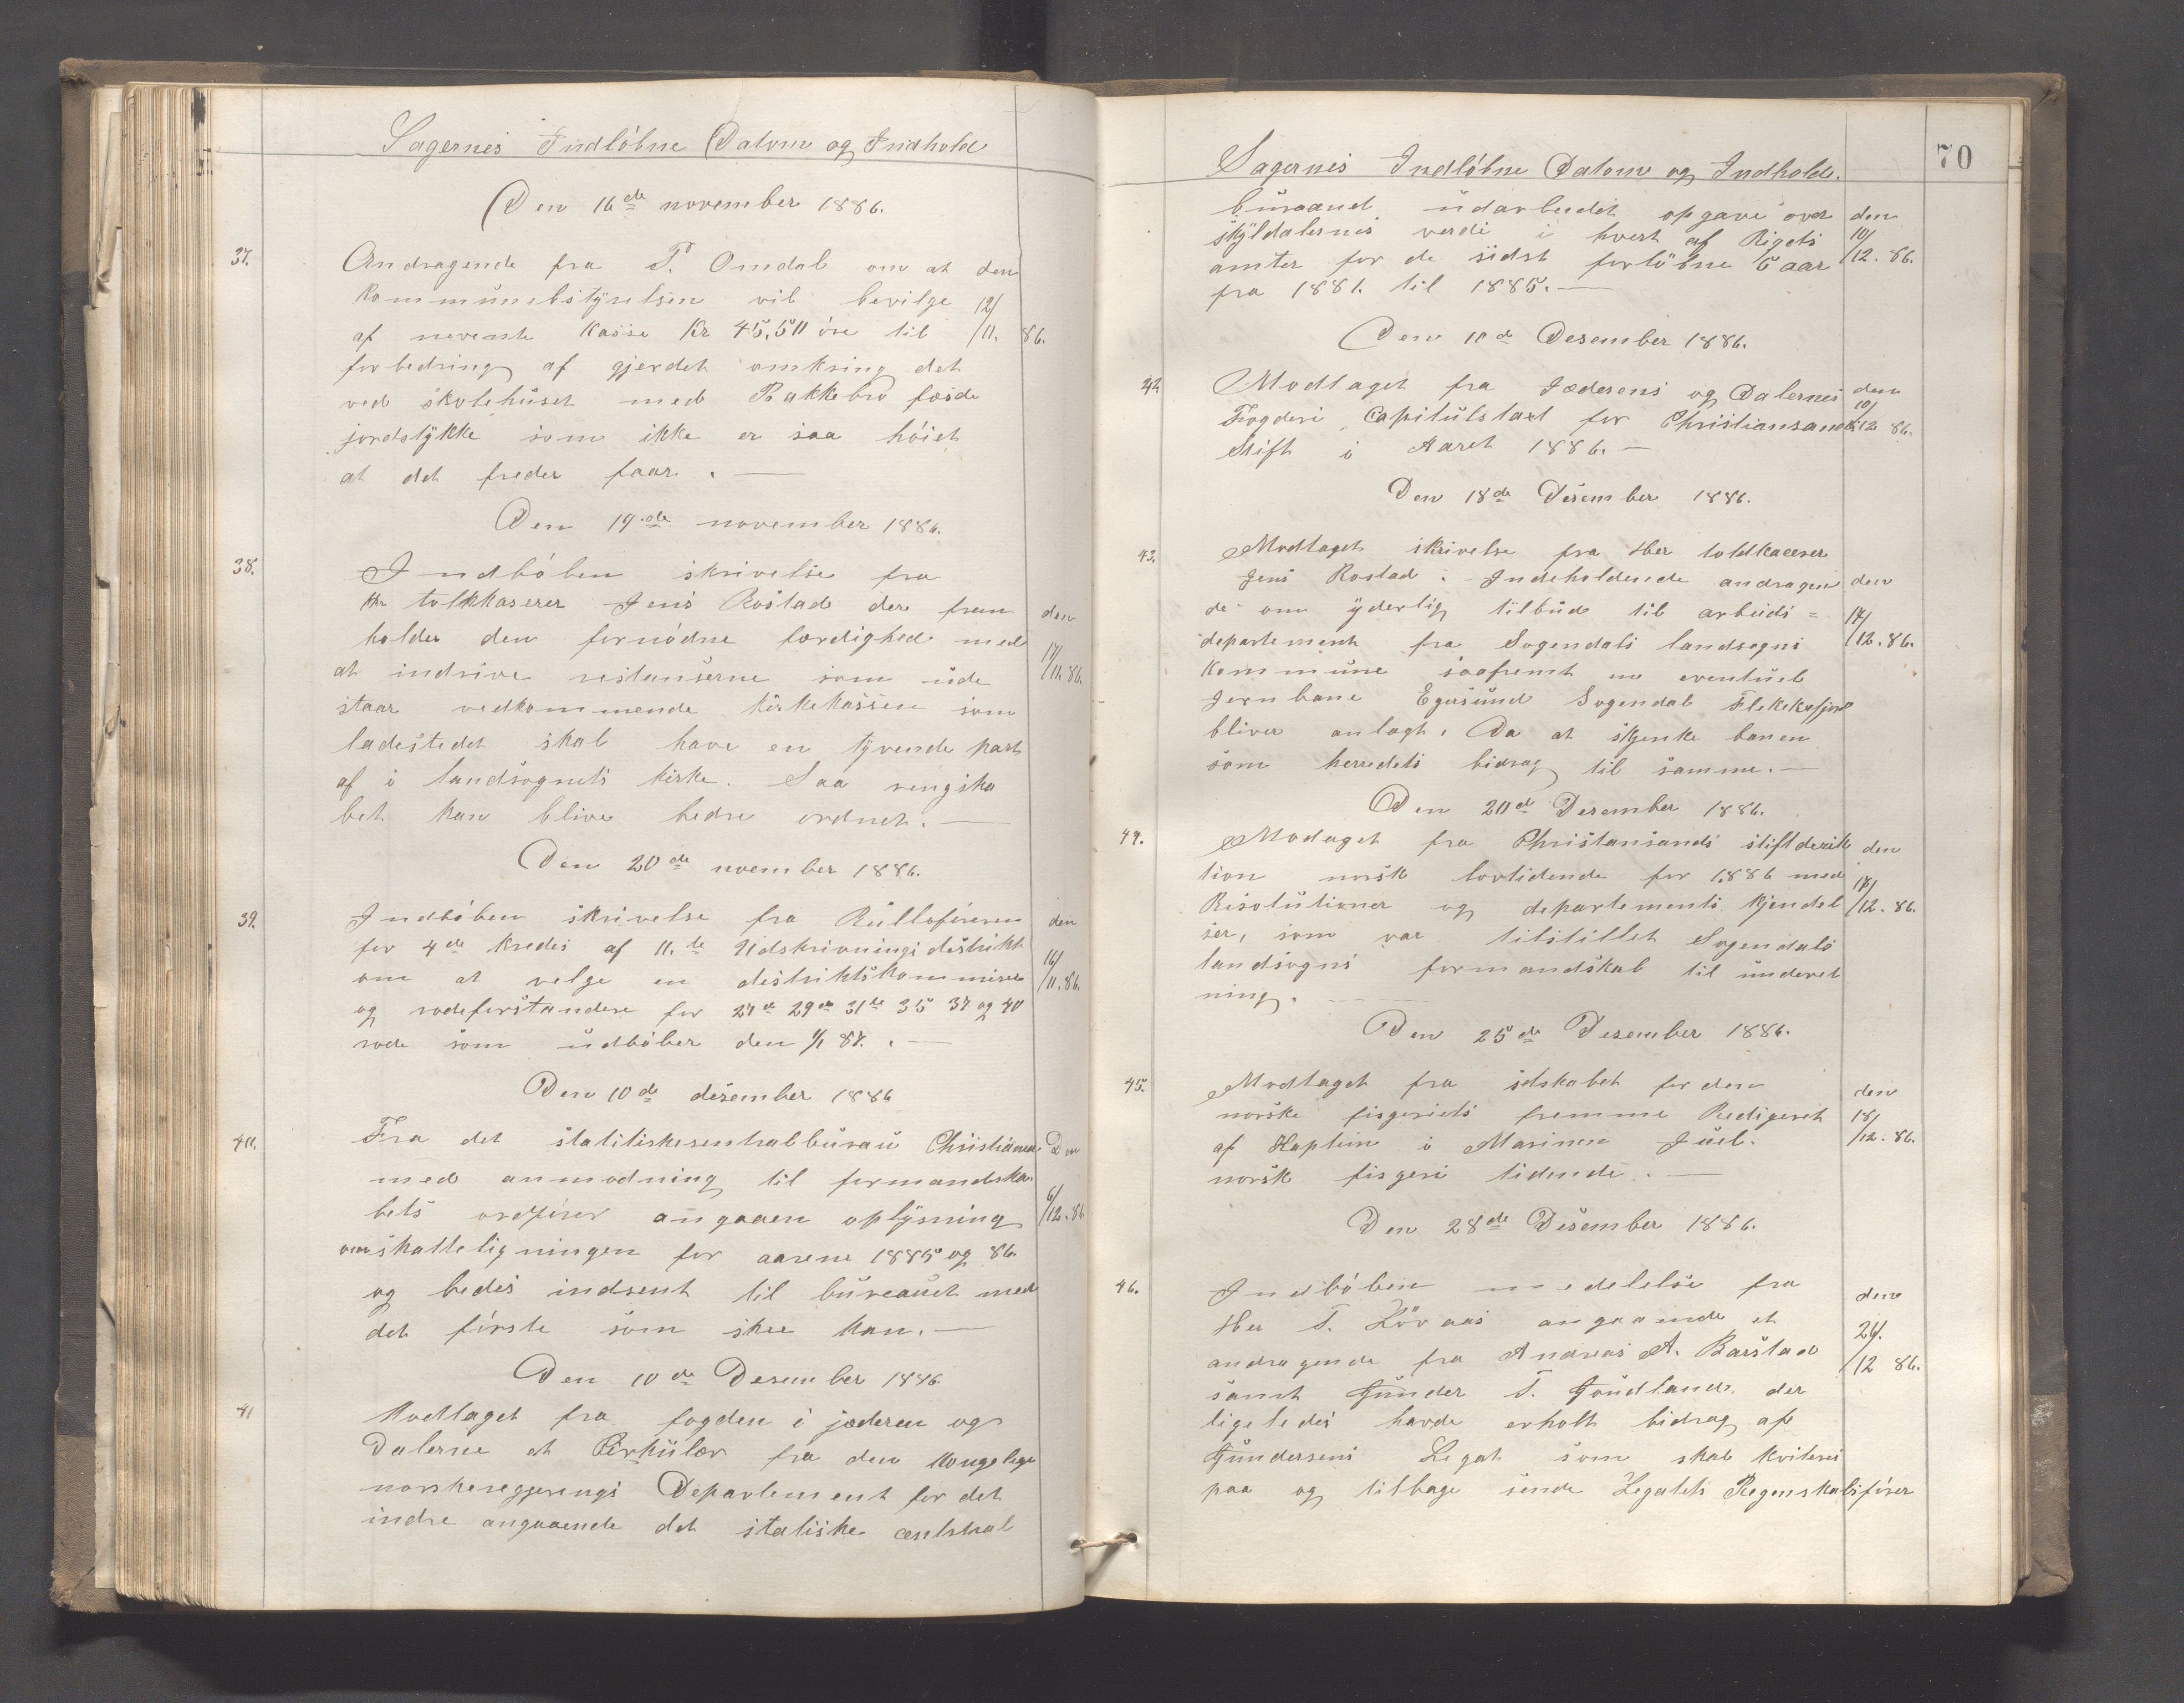 Sagernes Indløbne Datom og Indhold
Den 16de november 1886.
37. Andragende fra T. Omdal om at den
kommunebstyrelsen vil bevilge 12/
af nevente kasse Kr 45,50 øre til /11. 86.
forbedring af gjerdet omkring det
ved skolehuset med Bakkebø
jordstykke som ikke er saa høiet
at det freder faar. —
Den 19.de november 1886.
38. Indløben skrivelse fra
Hr tolkkaserer Jens Rostad der frem den
holder den fornødne færdighed med 17/
at indrive restanserne som ude /11. 86.
staar vedkommende kirkekassen som
ladestedet skal have en tyvende part
af i landsognets kirke. Saa rengska
bet kan blive bedre ordnet. —
Den 20de november 1886.
39. Indløben skrivelse fra Rulleføreren den
for 4de kredes af 11.te Udskrivningsdestrikt 16/
om at velge en destriktskommiser /11. 86.
og rodeforstandere for 27de 29de 31te 35 37 og 40
rode som udløber den 1/1 87. —
Den 10de desember 1886
40. Fra det statitiskesentralbureau Christiania Den
med anmodning til formandska
bets ordfører angaaen oplysning 6/12. 86
om skatteligningen for aarene 1885 og 86.
og bedes indsent til bureauet med
det første som skee kan. —
Den 10de Desember 1886
41 Modtaget fra fogden i jæderen og
Dalerne et Cirkulær fra den kongelige
norskeregjerings Departement for det
indre angaaende det statiske centstral
70
Sagernes Indløbne Datom og Indhold.
bureaued udarbeidet opgave over den
skyldalernes verdi i hvert af Rigets 10/
amter for de sidst forløbne 5 aar /12. 86.
fra 1881. til 1885. —
Den 10de Desember 1886.
42. Modtaget fra Jæderens og Dalernes den
Fogderi Capitulstaxt for Christiansands 10/12 86.
Stift i Aaret 1886. —
Den 18de Desember 1886.
43. Modtaget skrivelse fra Her toldkacerer
Jens Rostad. Indeholdende andragen den
de om yderlig tilbud til arbeids= 17/
departement fra Sogendals landsogns /12. 86.
kommune saafremt en eventuel
Jernbane Egersund Sogendal Flekkefjord
bliver anlagt. Da at skjenke banen
som herredets bidrag til samme. —
Den 20de Desember 1886.
44. Modaget fra Christansands stiftderek den
tion norsk lovtidende for 1886 med 18/
Resolutioner og departements kjendel /12. 86.
ser, som var tilstillet Sogendals
landsogns formandskab til underet
ning. —
Den 25de Desember 1886.
45. Modtaget fra sdskabet for den den
norske fisgeriets fremme Redigeret 18/
af Kaptein i Marinen Juel. /12. 86.
norsk fisgeri tidende. —
Den 28de Desember 1886.
46. Indløben medelelse fra den
Her T. Løvaas angaaende et 24.
andragende fra Andreas A. Barstad /12 86.
samt Gunder T. Goudland. der
ligeledes havde erholt bidrag af
Gundersens Legat som skal kviteres
paa og tilbage sende Legatets Regenskabsfører